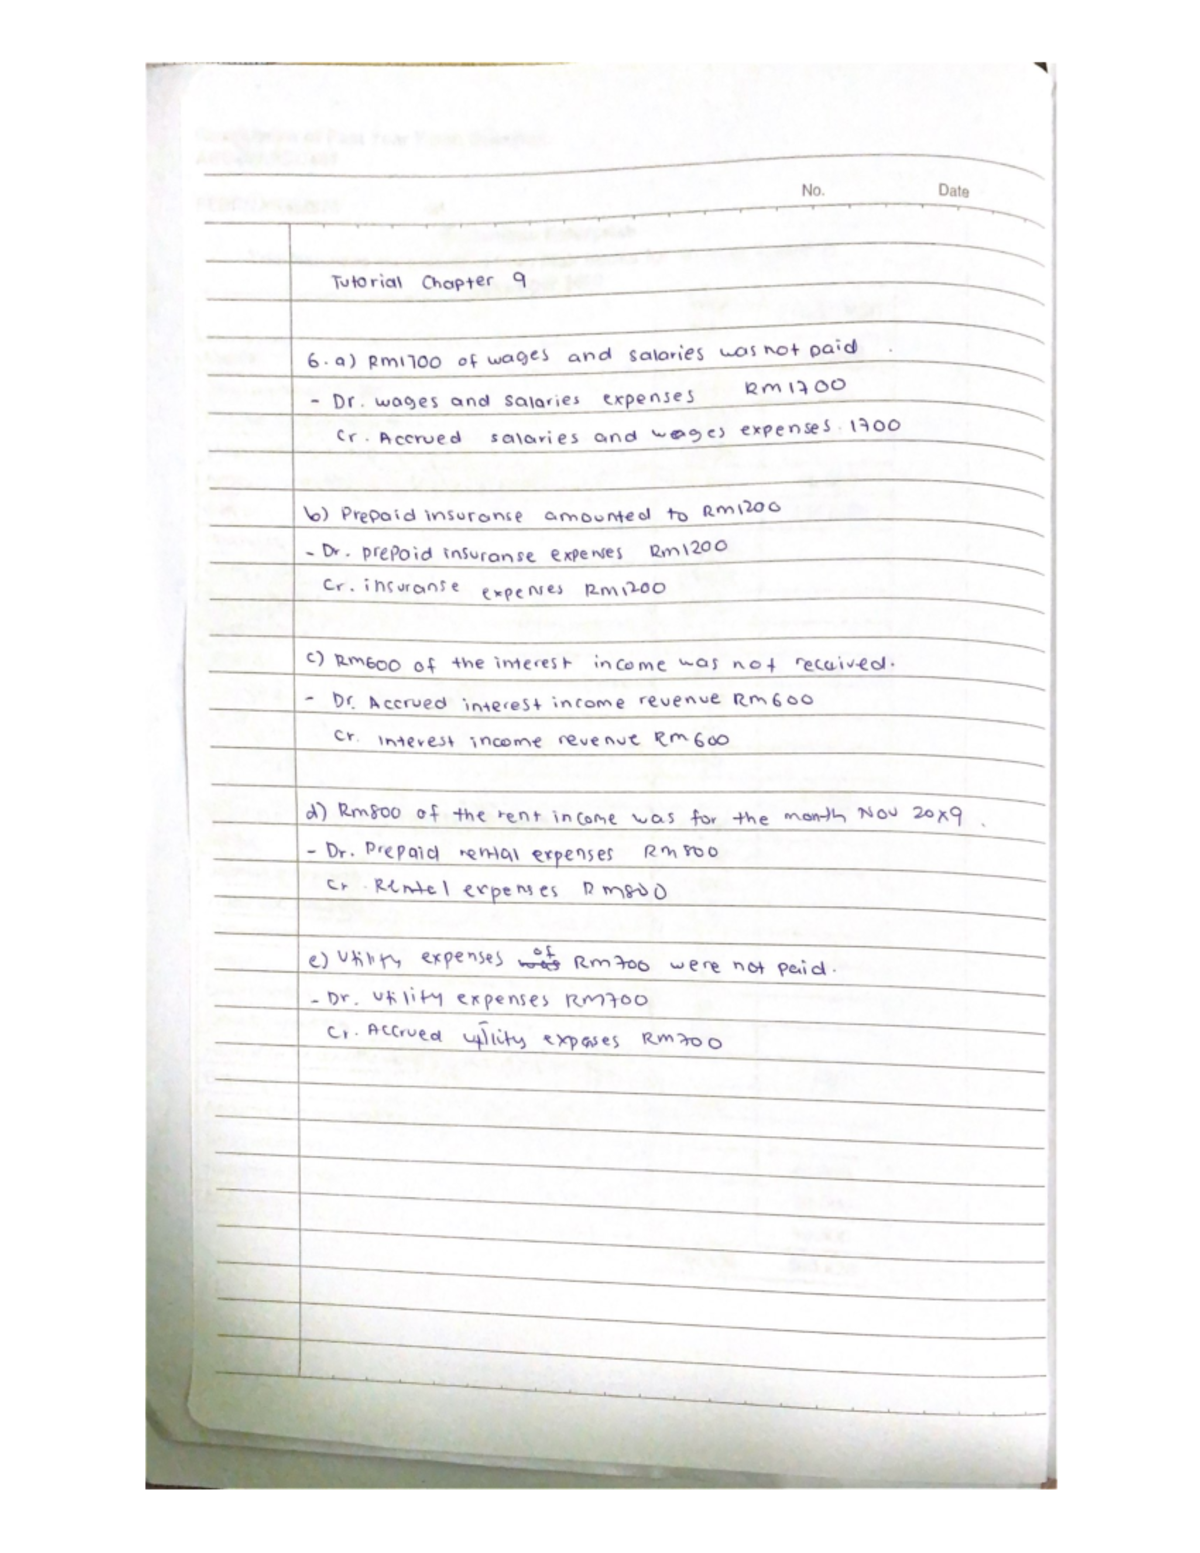 No. Date
Tutorial Chapter 9
6. a) RM1700 of wages and salaries was not paid.
- Dr. wages and salaries expenses RM 1700
Cr. Accrued salaries and wages expenses. 1700
b) Prepaid insuranse amounted to RM1200
- Dr. prepaid insuranse expenses RM1200
Cr. insuranse expenses RM1200
c) RM600 of the interest income was not received.
- Dr. Accrued interest income revenue RM600
Cr. Interest income revenue RM600
d) RM800 of the rent income was for the month Nov 20X9.
- Dr. Prepaid rental expenses RM800
Cr. Rentel expenses RM800
e) Utility expenses of RM700 were not paid.
- Dr. Utility expenses RM700
Cr. Accrued utility expenses RM700